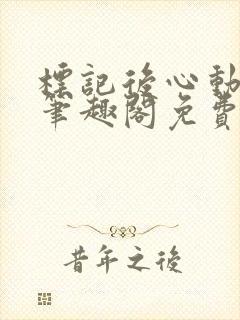 標記後心動
筆趣閣免費
昔年之後